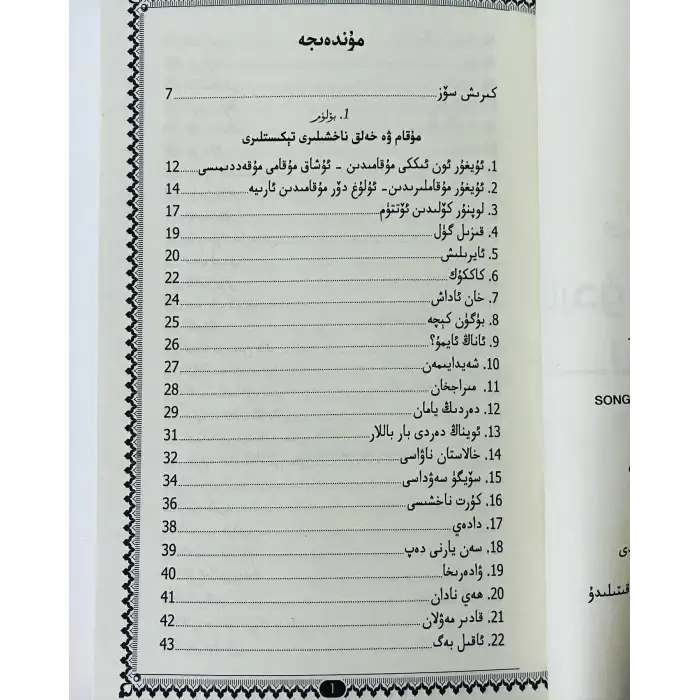 مۇندەرىجە
كىرىش سۆز 7
1. بۆلۈم
مۇقام ۋە خەلق ناخشىلىرى تېكىستلىرى
1. ئۇيغۇر ئون ئىككى مۇقامىدىن - ئۇشاق مۇقامى مۇقەددىمىسى 12
2. ئۇيغۇر مۇقاملىرىدىن - ئۇلۇغ دۆر مۇقامىدىن ئارىيە 14
3. لوپنۇر كۆلىدىن ئۆتتۈم 17
4. قىزىل گۈل 19
5. ئايرىلىش 20
6. كاككۇك 22
7. خان ئاداش 24
8. بۈگۈن كېچە 25
9. ئاناڭ ئايمۇ؟ 26
10. شەيدايىمەن 27
11. مىراجخان 28
12. دەردىڭ يامان 29
13. ئويناڭ دەردى بار باللار 31
14. خالاستان ناۋاسى 32
15. سۆيگۈ سەۋداسى 34
16. كۇرت ناخشىسى 36
17. دادەي 38
18. سەن يارنى دەپ 39
19. ۋادەرىخا 40
20. ھەي نادان 41
21. قادىر مەۋلان 42
22. ئاقىل بەگ 43
1
SONG